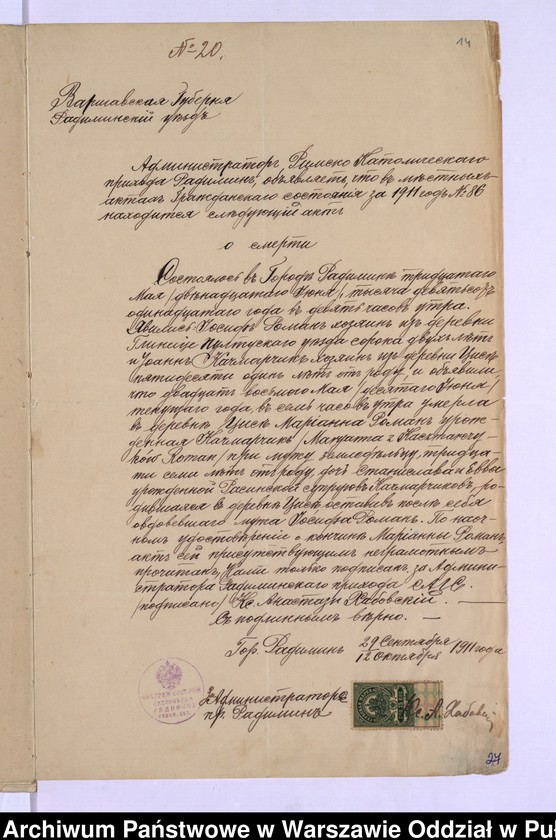 14
№ 20.
Варшавская Губернія
Радиминскій уѣздъ
Администраторъ Римско Католическаго
прихода Радиминъ, объявляетъ, что въ мѣстныхъ
актахъ Гражданскаго состоянія за 1911 годъ № 86
находится слѣдующій актъ
о смерти
Состоялось въ Городѣ Радиминѣ тридцатаго
Мая /двѣнадцатаго Іюня/, тысяча девятьсотъ
одинадцатаго года въ девять часовъ утра.
Явились Іосифъ Романъ хозяинъ изъ деревни
Глиницѣ Пултускаго уѣзда сорока двухъ лѣтъ
и Іоаннъ Качмарчикъ хозяинъ изъ деревни Цискъ
пятидесяти одинъ лѣтъ отъ роду, и объявили
что двадцать восьмого Мая /десятаго Іюня/
текущаго года, въ семь часовъ утра умерла
въ деревнѣ Цискъ Маріанна Романъ урож-
денная Качмарчикъ
при мужѣ земледѣльцу, тридца-
ти семи лѣтъ отъ роду, дочь Станислава и Еввы
урожденной Расинской супруговъ Качмарчиковъ, ро-
дившаяся въ деревнѣ Цискъ оставивъ послѣ себя
овдовѣвшаго мужа Іосифа Романъ. По наоч-
номъ удостовѣреніи о кончинѣ Маріанны Романъ
актъ сей присутствующимъ неграмотнымъ
прочитанъ, Нами только подписанъ. за Админи-
стратора Радиминскаго прихода
/подписано/ Кс. Анастазы Хабовскій.
Съ подлиннымъ вѣрно.
Гор. Радиминъ 29 Сентября / 12 Октября 1911 года
За Администратора
пр. Радиминъ
Кс. А. Хабовскій
27
Archiwum Państwowe w Warszawie Oddział w Pu